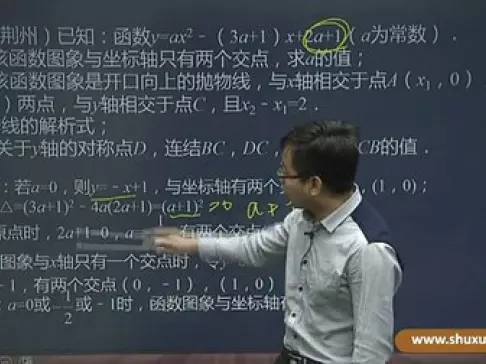 荆州）已知：函数y=ax²－（3a+1）x+2a+1（a为常数）．
该函数图象与坐标轴只有两个交点，求a的值；
该函数图象是开口向上的抛物线，与x轴相交于点A（x₁，0）
）两点，与y轴相交于点C，且x₂－x₁=2．
线的解析式；
关于y轴的对称点D，连结BC，DC， CB的值．
：若a=0，则y=－x+1，与坐标轴有两个 （1，0）；
△=(3a+1)²－4a(2a+1)=(a+1)² >0 a
原点时，2a+1=0，a= 有两个交点
图象与x轴只有一个交点时，
－1，有两个交点（0，－1），（1，0）
：a=0或－1/2或－1时，函数图象与坐标轴
www.shuxu